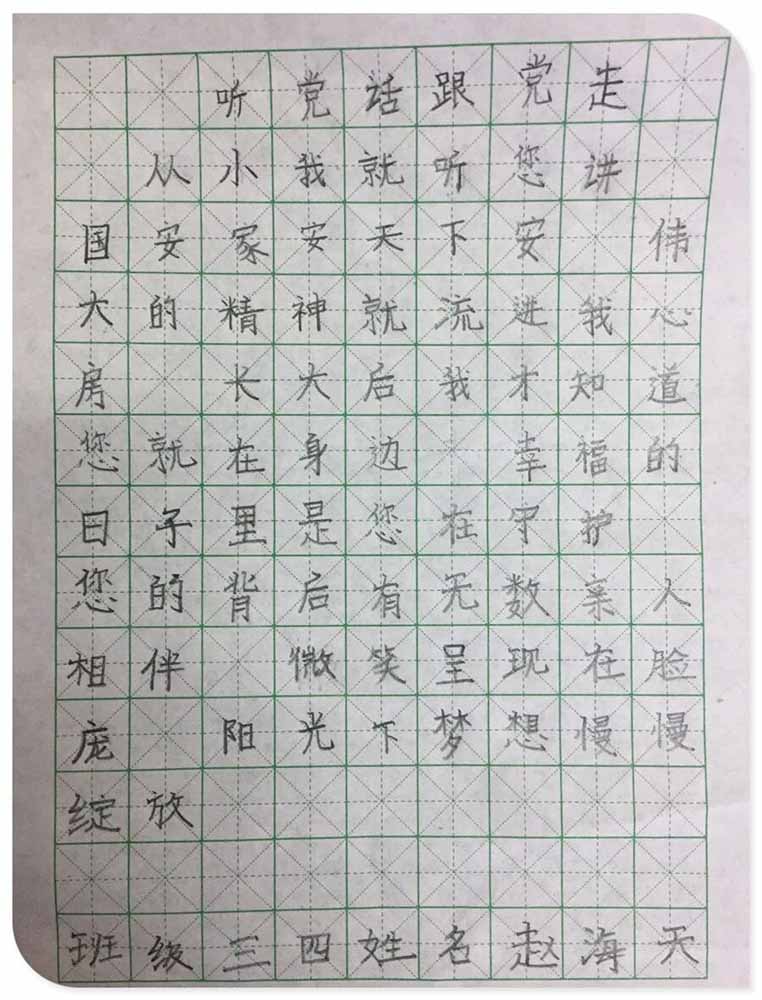 听党话跟党走
从小我就听您讲
国安家安天下安 伟
大的精神就流进我心
房 长大后我才知道
您就在身边 幸福的
日子里是您在守护
您的背后有无数亲人
相伴 微笑呈现在脸
庞 阳光下梦想慢慢
绽放
班级三四姓名赵海天